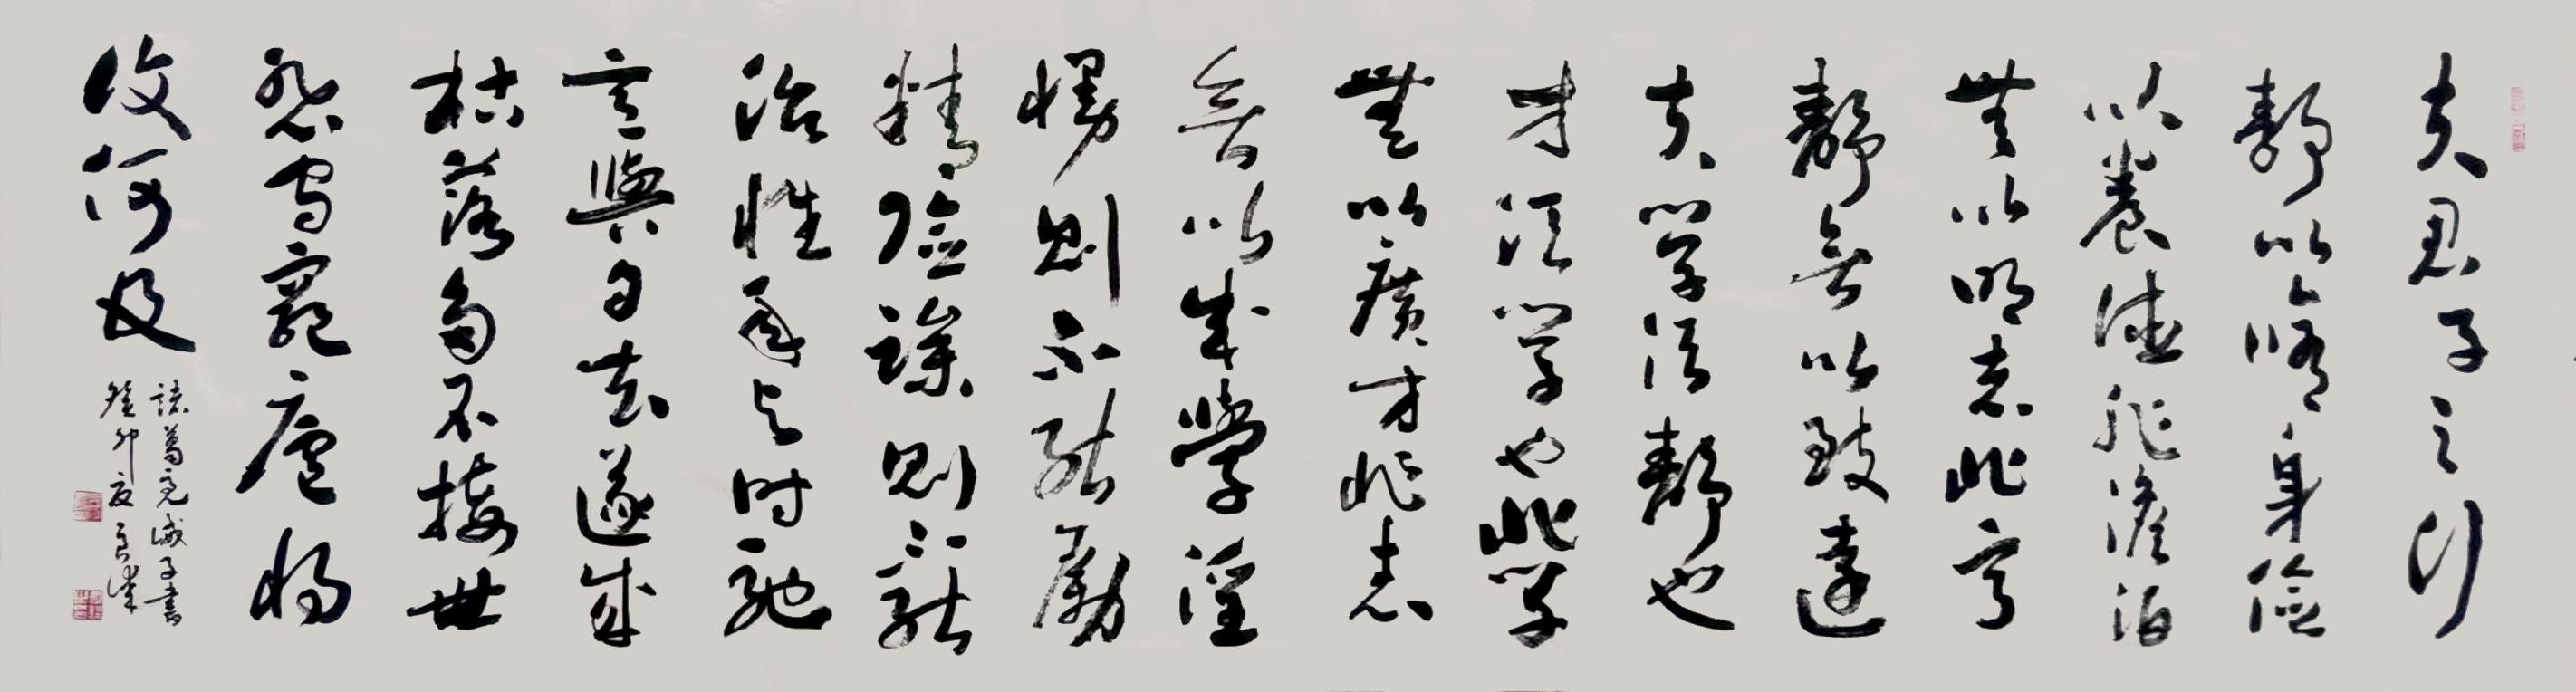 夫君子之行
靜以脩身儉
以養德非澹泊
無以明志非寧
靜無以致遠
夫學須靜也
才須學也非學
無以廣才非志
無以成學淫
慢則不能勵
精險躁則不能
治性年与时馳
意與日去遂成
枯落多不接世
悲守窮廬將
復何及
諸葛亮誡子書
癸卯夏